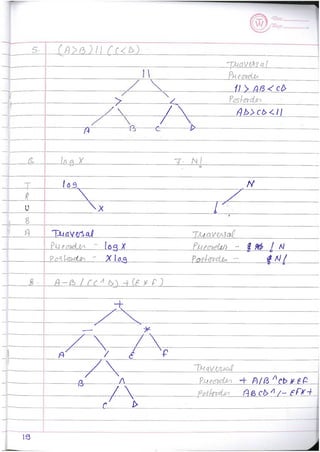 5. (A>B)||(C<D)
||
> <
A B C D
Traversal
Preorder
|| > AB < CD
Postorder
AB>CD<||
6. log X
log
X
Traversal
Preorder - log X
Postorder - X log
7. N!
N
!
Traversal
Preorder - ! N
Postorder - N!
T
R
U
B
A
8. A-B/(C^D)+(E*F)
+
- *
A / E F
B ^
C D
Traversal
Preorder + A/B^CD*EF
Postorder ABCD^/-EF*+
18